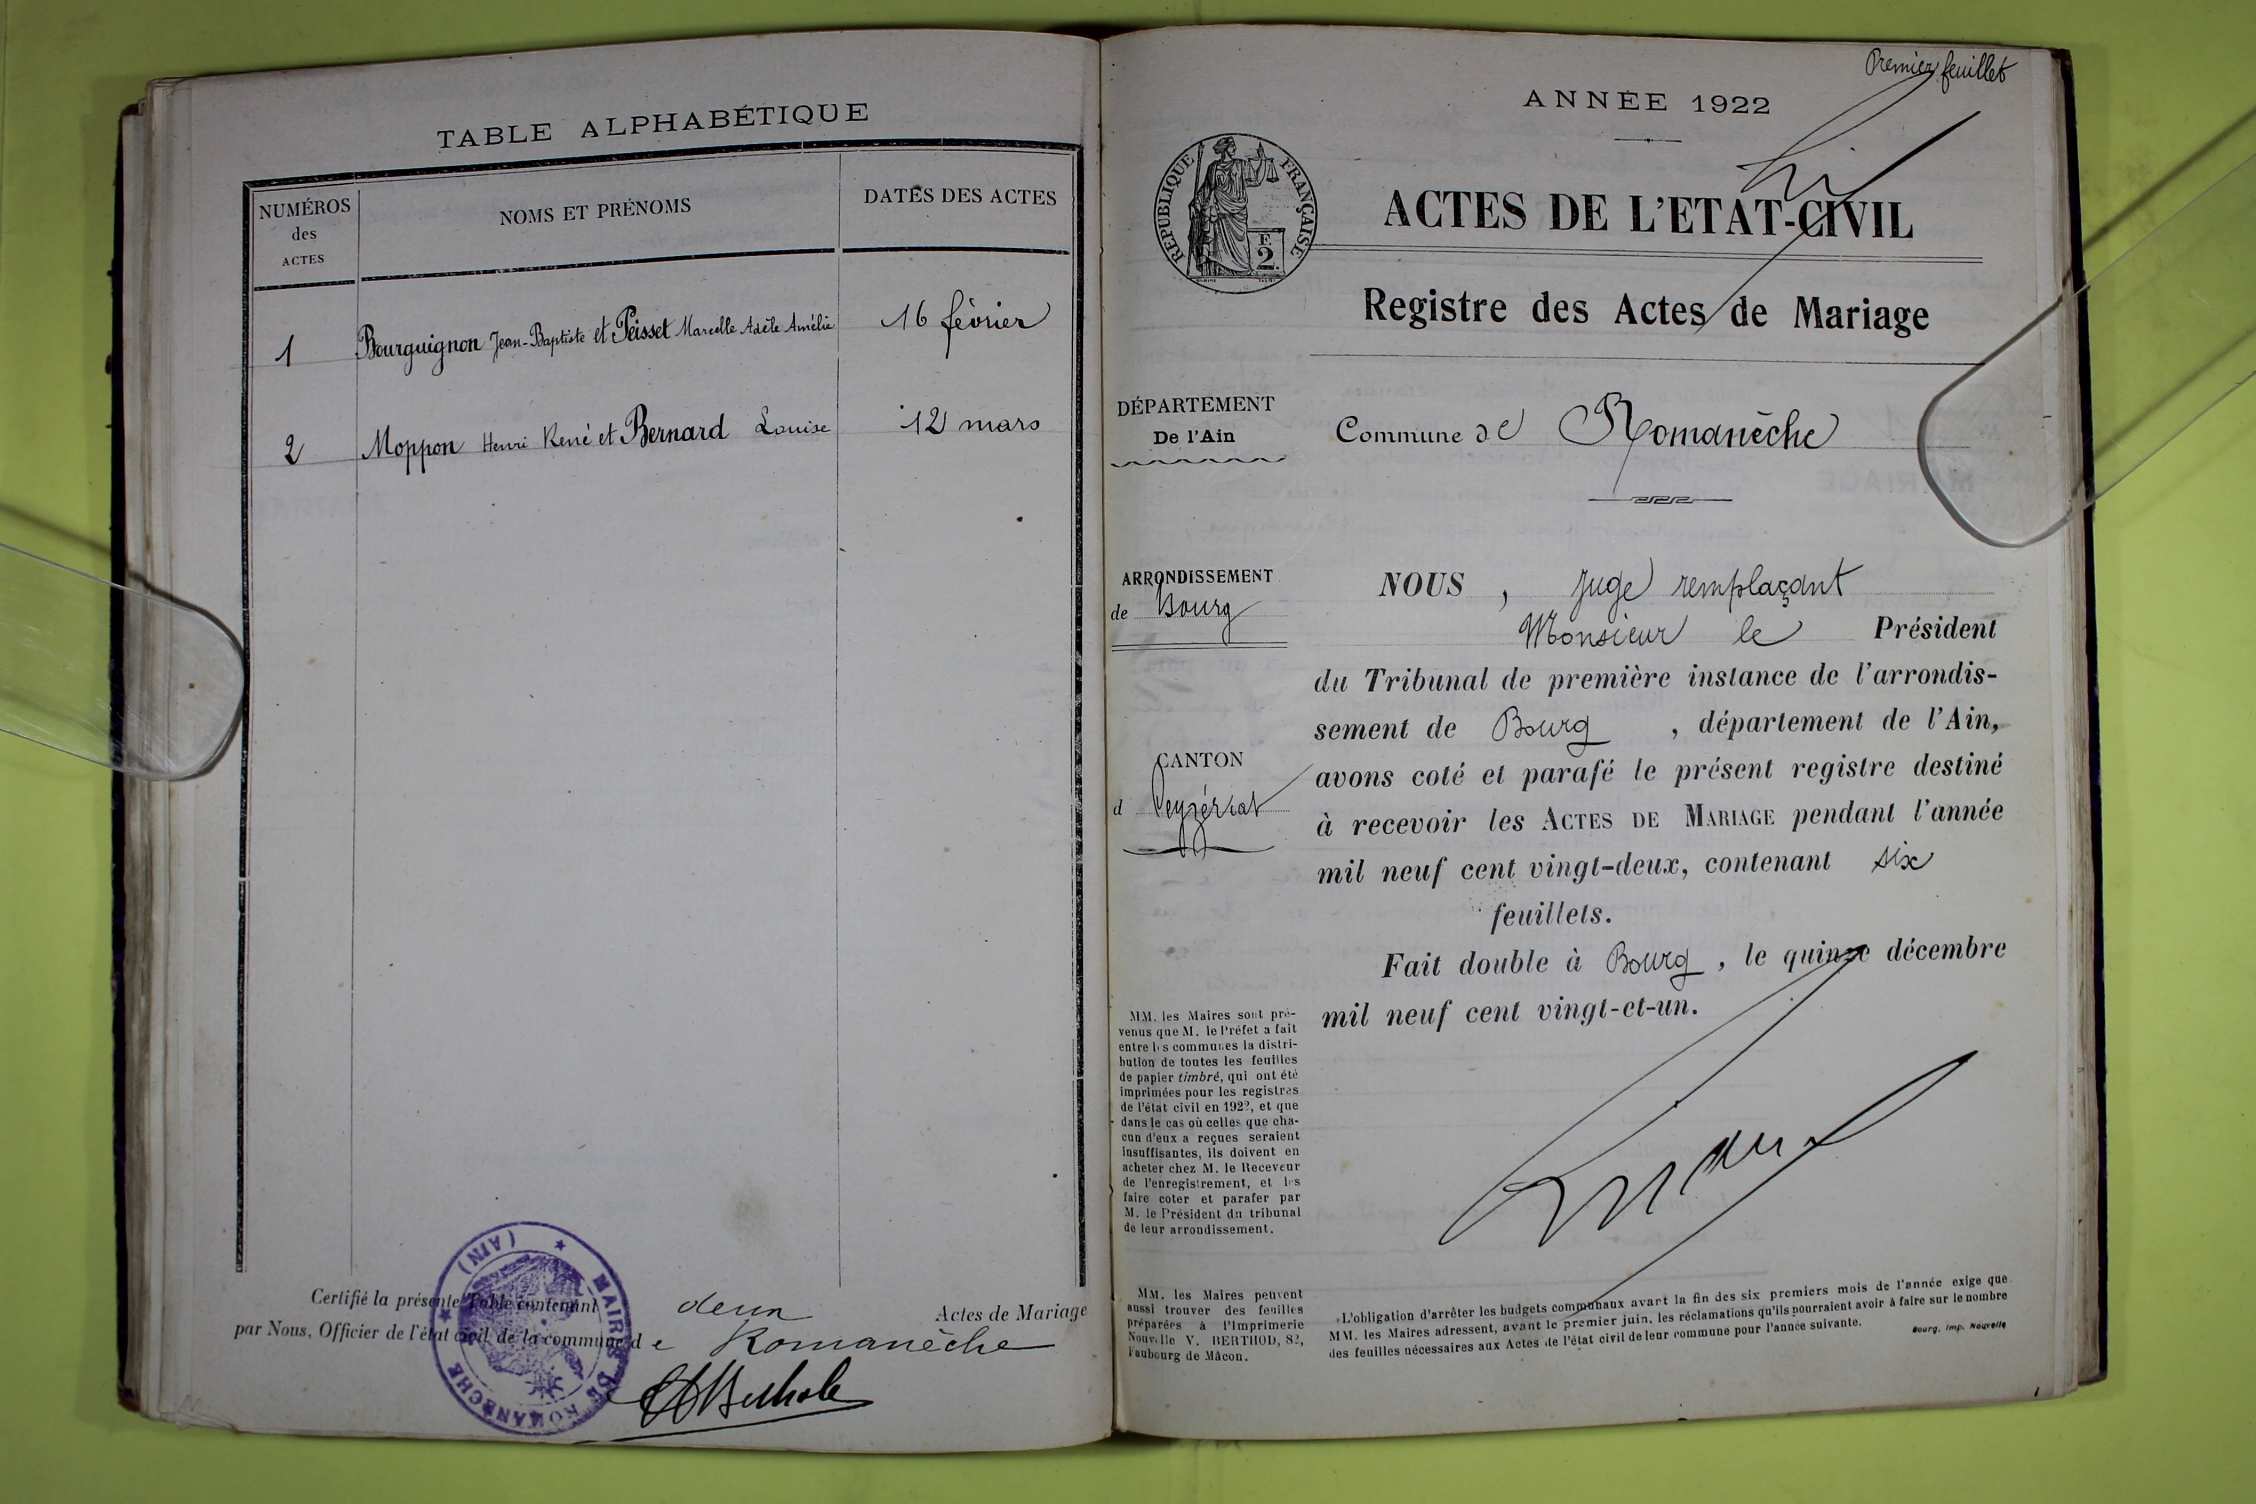 TABLE ALPHABÉTIQUE
NUMÉROS
des
ACTES
NOMS ET PRÉNOMS
DATES DES ACTES
1 Bourguignon Jean-Baptiste et Peisset Marcelle Adèle Amélie 16 février
2 Moppon Henri René et Bernard Louise 12 mars
Certifié la présente Table contenant deux Actes de Mariage
par Nous, Officier de l'état civil de la commune de Romanèche
MAIRIE DE ROMANÈCHE (AIN)
Premier feuillet
ANNÉE 1922
RÉPUBLIQUE FRANÇAISE
F.
2
ACTES DE L'ETAT-CIVIL
Registre des Actes de Mariage
DÉPARTEMENT
De l'Ain
Commune de Romanèche
ARRONDISSEMENT
de Bourg
CANTON
d Ceyzériat
NOUS, Juge remplaçant
Monsieur le Président
du Tribunal de première instance de l'arrondis-
sement de Bourg, département de l'Ain,
avons coté et parafé le présent registre destiné
à recevoir les ACTES DE MARIAGE pendant l'année
mil neuf cent vingt-deux, contenant six
feuillets.
Fait double à Bourg, le quinze décembre
mil neuf cent vingt-et-un.
MM. les Maires sont pré-
venus que M. le Préfet a fait
entre les communes la distri-
bution de toutes les feuilles
de papier timbré, qui ont été
imprimées pour les registres
de l'état civil en 1922, et que
dans le cas où celles que cha-
cun d'eux a reçues seraient
insuffisantes, ils doivent en
acheter chez M. le Receveur
de l'enregistrement, et les
faire coter et parafer par
M. le Président du tribunal
de leur arrondissement.
MM. les Maires peuvent
aussi trouver des feuilles
préparées à l'Imprimerie
Nouvelle V. BERTHOD, 82,
Faubourg de Mâcon.
L'obligation d'arrêter les budgets communaux avant la fin des six premiers mois de l'année exige que
MM. les Maires adressent, avant le premier juin, les réclamations qu'ils pourraient avoir à faire sur le nombre
des feuilles nécessaires aux Actes de l'état civil de leur commune pour l'année suivante.
Bourg, Imp. Nouvelle